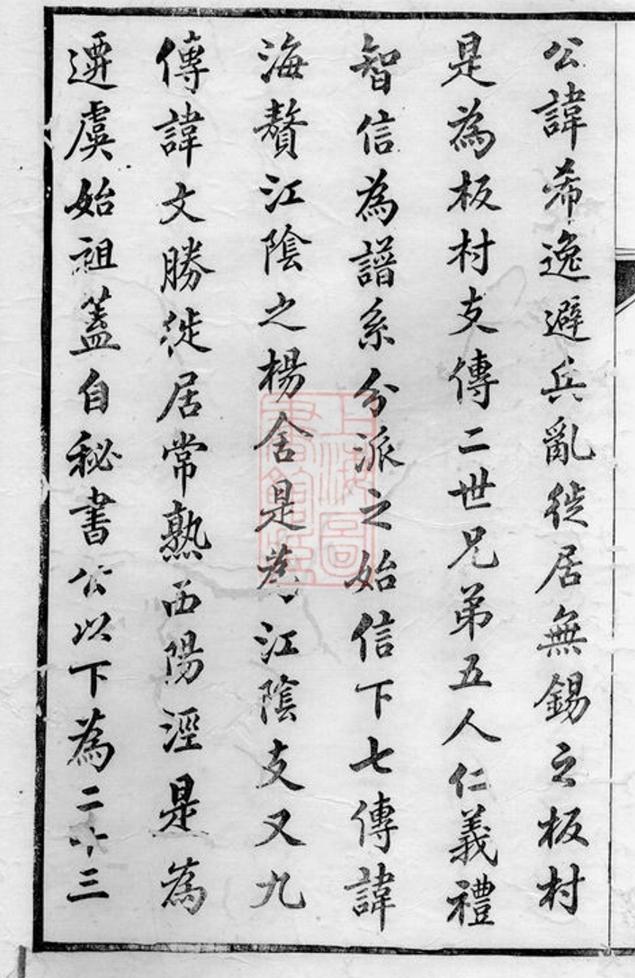 公諱希逸避兵亂徙居無錫之板村
是為板村支傳二世兄弟五人仁義禮
智信為譜系分派之始信下七傳諱
海贅江陰之楊舍是為江陰支又九
傳諱文勝徙居常熟西陽涇是為
遷虞始祖蓋自秘書公以下為二十三
上海圖
書館藏